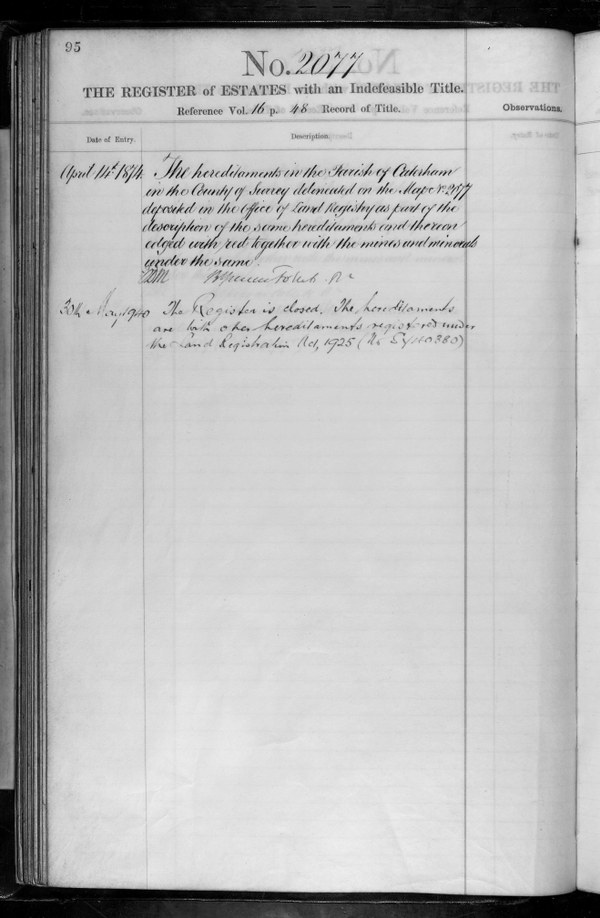 95
No. 2077
THE REGISTER of ESTATES with an Indefeasible Title.
Reference Vol. 16 p. 48 Record of Title.
Observations.
Date of Entry.
Description.
April 14th 1874. The hereditaments in the Parish of Caterham
in the County of Surrey delineated on the Map No. 2077
deposited in the Office of Land Registry as part of the
description of the same hereditaments and thereon
edged with red together with the mines and minerals
under the same.
30th May 1940 The Register is closed. The hereditaments
are with other hereditaments registered under
the Land Registration Act, 1925 (No Sy 140380)